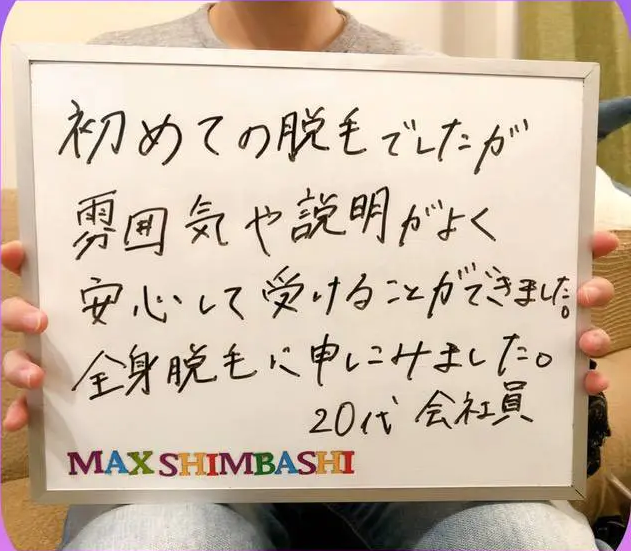 初めての脱毛でしたが
雰囲気や説明がよく
安心して受けることができました。
全身脱毛に申しこみました。
20代 会社員
MAX SHIMBASHI